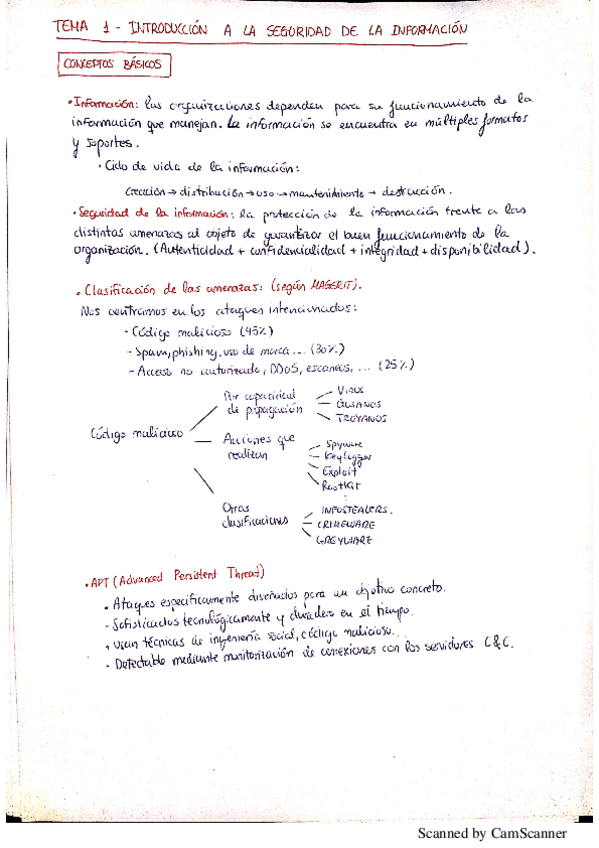 TEMA 1 - INTRODUCCIÓN A LA SEGURIDAD DE LA INFORMACIÓN
CONCEPTOS BÁSICOS
• Información: las organizaciones dependen para su funcionamiento de la
información que manejan. La información se encuentra en múltiples formatos
y soportes.
• Ciclo de vida de la información:
creación → distribución → uso → mantenimiento → destrucción.
• Seguridad de la información: la protección de la información frente a las
distintas amenazas al objeto de garantizar el buen funcionamiento de la
organización. (Autenticidad + confidencialidad + integridad + disponibilidad).
• Clasificación de las amenazas: (según MAGERIT).
Nos centramos en los ataques intencionados:
- Código malicioso (45%)
- Spam, phishing, uso de marca ... (30%)
- Acceso no autorizado, DDoS, escaneos, ... (25%)
Código malicioso
Por capacidad
de propagación
- VIRUS
- GUSANOS
- TROYANOS
Acciones que
realizan
- Spyware
- Keylogger
- Exploit
- RootKit
Otras
clasificaciones
- INFOSTEALERS.
- CRIMEWARE
- GREYWARE
• APT (Advanced Persistent Threat)
• Ataques específicamente diseñados para un objetivo concreto.
• Sofisticados tecnológicamente y duradero en el tiempo.
• Usan técnicas de ingeniería social, código malicioso...
• Detectable mediante monitorización de conexiones con los servidores C&C.
Scanned by CamScanner